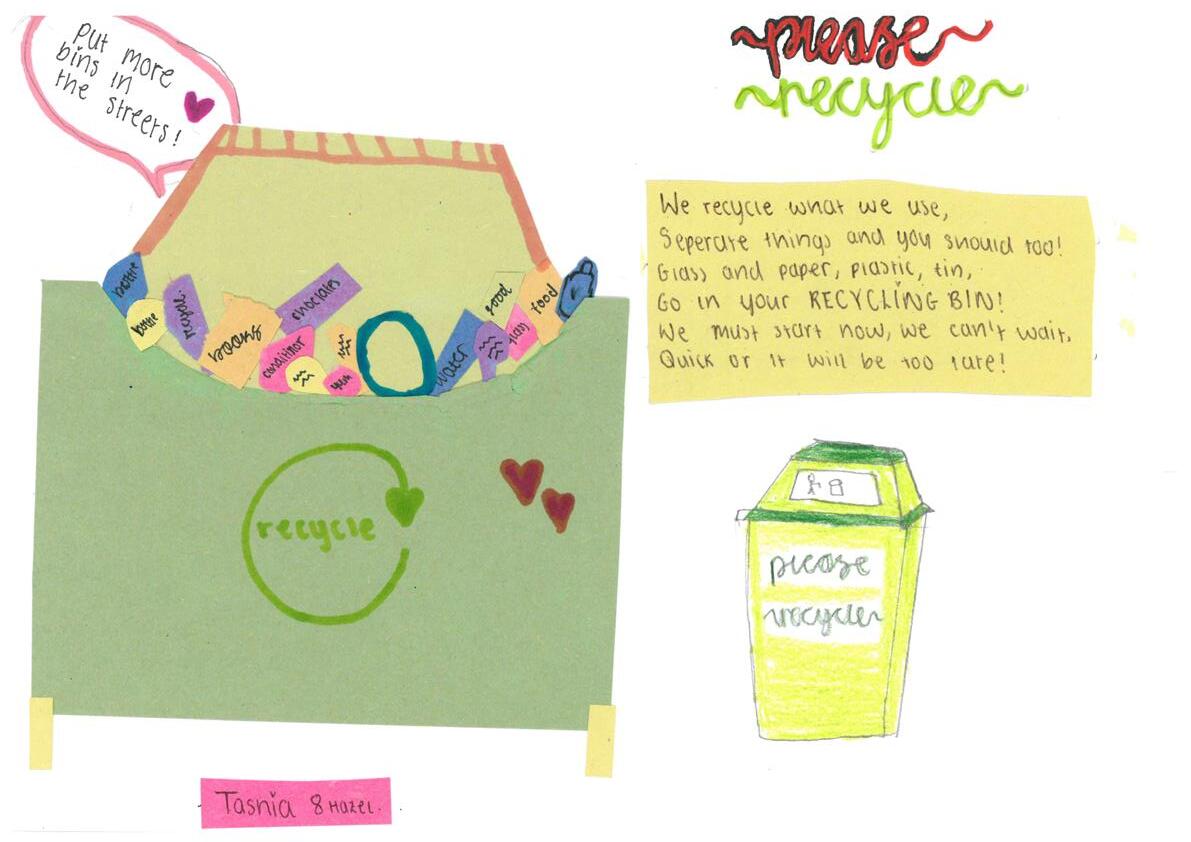 put more
bins in
the streets!
please
recycle
We recycle what we use,
Seperate things and you should too!
Glass and paper, plastic, tin,
Go in your RECYCLING BIN!
We must start now, we can't wait,
Quick or it will be too late!
bottle
bottle
recycle
books
chocolates
conditioner
water
glass
food
food
recycle
please
recycle
Tasnia 8 Hazel.